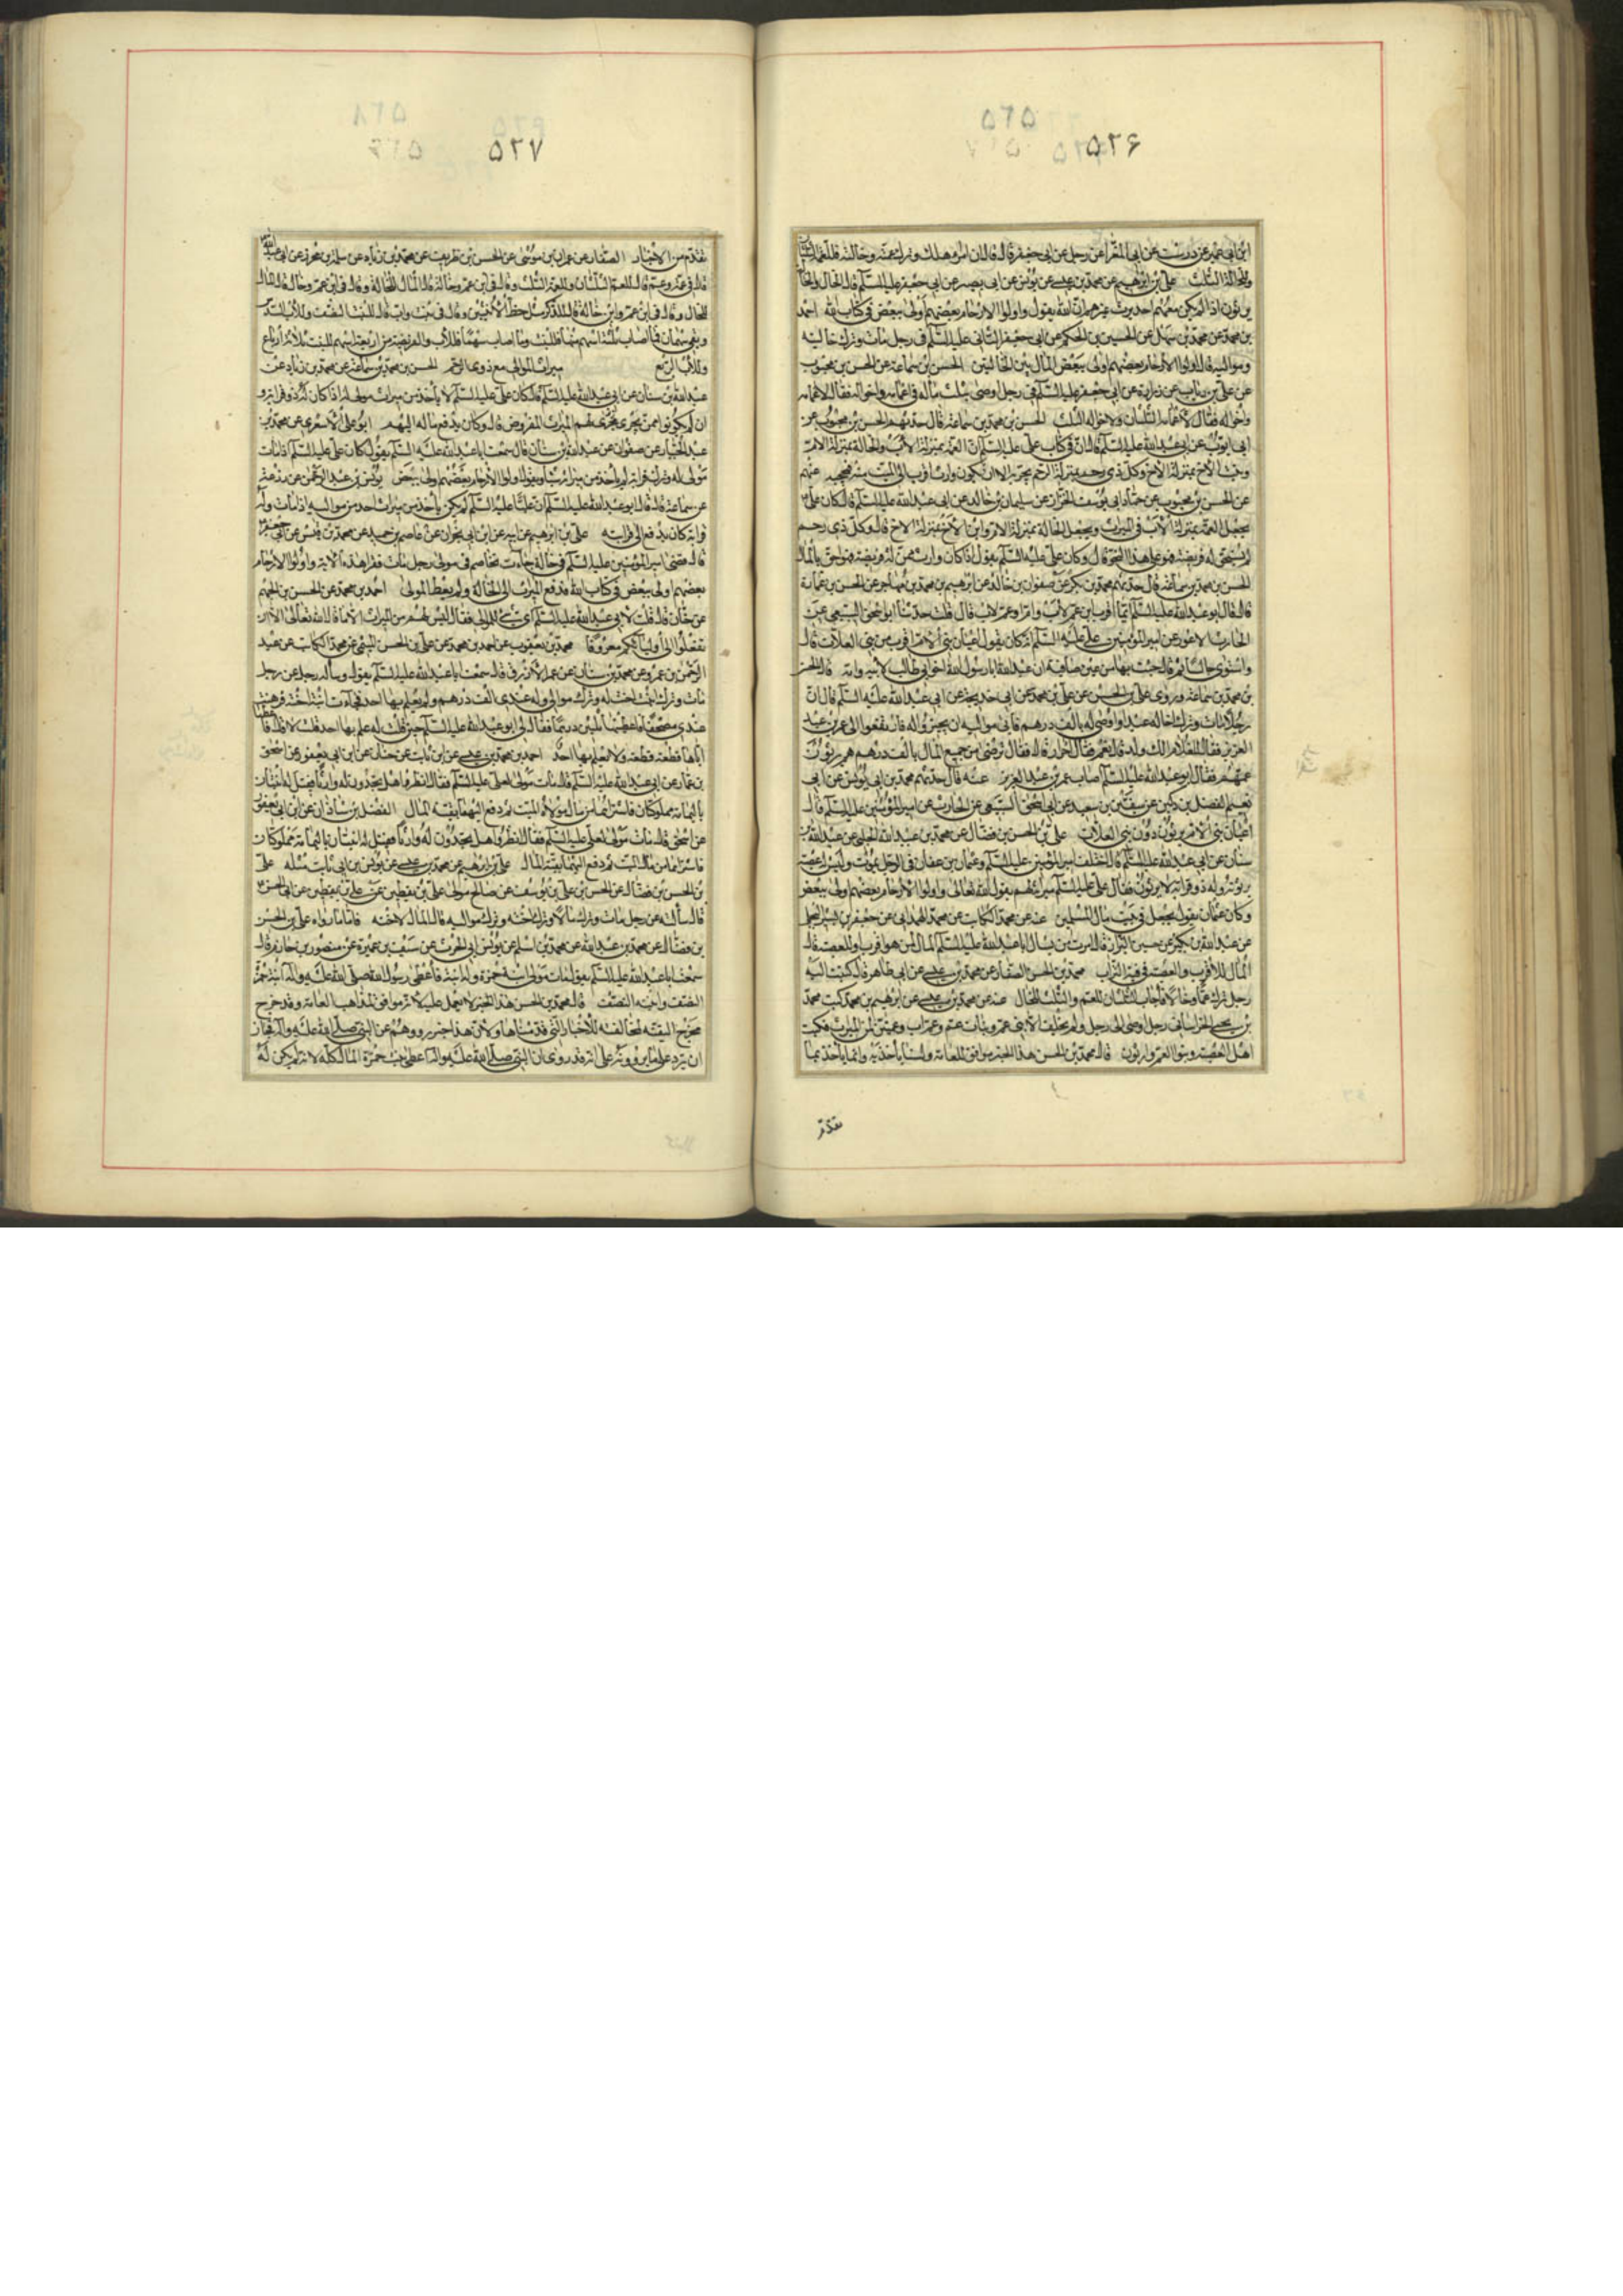 ۵۲۶
ابن ابي عمير عن درست عن ابي المغرا عن رجل عن ابي جعفر قال قال ان امرؤ هلك وترك عمته وخالته فللعمة الثلثان
وللخالة الثلث علي بن ابراهيم عن محمد بن عيسى عن يونس عن ابي بصير عن ابي جعفر عليه السلم قال الخال والخالة
يرثون اذا لم يكن معهم احد يرث غيرهم ان الله يقول واولوا الارحام بعضهم اولى ببعض في كتاب الله احمد
بن محمد عن محمد بن سهل عن الحسين بن الحكم عن ابي جعفر الثاني عليه السلم في رجل مات وترك خاليته
ومواليه قال اولوا الارحام بعضهم اولى ببعض المال بين الخالتين الحسن بن سماعة عن الحسن بن محبوب
عن علي بن رئاب عن زرارة عن ابي جعفر عليه السلم في رجل اوصى بثلث ماله في اعمامه واخواله فقال لاعمامه
ولاخواله فقال لاعمامه الثلثان ولاخواله الثلث الحسن بن محمد بن سماعة قال حدثهم الحسن بن محبوب عن
ابي ايوب عن ابي عبد الله عليه السلم قال ان في كتاب علي عليه السلم ان العمة بمنزلة الاب والخالة بمنزلة الام
وبنت الاخ بمنزلة الاخ وكل ذي رحم بمنزلة الرحم الذي يجر به الا ان يكون وارث اقرب الى الميت منه فيحجبه عنهم
عن الحسن بن محبوب عن حماد ابي يوسف الخزاز عن سليمان بن خالد عن ابي عبد الله عليه السلم قال كان علي
يجعل العمة بمنزلة الاب في الميراث ويجعل الخالة بمنزلة الام وابن الاخ بمنزلة الاخ قال وكل ذي رحم
لم يستحق له فريضة فهو على هذا النحو قال وكان علي عليه السلم يقول اذا كان وارث ممن له فريضة فهو احق بالمال
الحسن بن محمد بن سماعة قال حدثهم محمد بن بكر عن صفوان بن خالد عن ابرهيم بن محمد بن مهاجر عن الحسن بن عمارة
قال قال ابو عبد الله عليه السلم ايما اقرب ابن عم لاب وام او عم لاب قال قلت حدثنا ابو اسحق السبيعي عن
الحارث الاعور عن امير المؤمنين علي عليه السلم انه كان يقول اعيان بني الام اقرب من بني العلات قال
فاستوى جالسا ثم قال جئت بها من عين صافية ان عبد الله ابا رسول الله اخو ابي طالب لابيه وامه قال الحسن
بن محمد بن سماعة وروى علي بن الحسن عن علي بن محمد عن ابي خديجة عن ابي عبد الله عليه السلم قال ان
رجلا مات وترك اخا له عبدا واوصى له بالف درهم فابى مواليه ان يجيزوا له فارتفعوا الى عمر بن عبد
العزيز فقال للغلام الك ولد قال نعم فقال احرار قال فقال ترضى من جميع المال بالف درهم هم يرثون
عمهم فقال ابو عبد الله عليه السلم اصاب عمر بن عبد العزيز عنه قال حدثهم محمد بن ابي يونس عن ابي
نعيم الفضل بن دكين عن سفيان بن سعيد عن ابي اسحق السبيعي عن الحارث عن امير المؤمنين عليه السلم قال
اعيان بني الام يرثون دون بني العلات علي بن الحسن بن فضال عن محمد بن عبد الله الحلبي عن عبد الله بن
سنان عن ابي عبد الله عليه السلم قال اختلف امير المؤمنين عليه السلم وعثمان بن عفان في الرجل يموت وليس له عصبة
يرثونه وله ذو قرابة لا يرثون فقال علي عليه السلم ميراثه لهم يقول الله تعالى واولوا الارحام بعضهم اولى ببعض
وكان عثمان يقول يجعل في بيت مال المسلمين عنه عن محمد الكاتب عن محمد الهمداني عن جعفر بن بشير البجلي
عن عبد الله بن بكير عن حسين البزاز قال امرت من يسال ابا عبد الله عليه السلم المال لمن هو اقرب او للعصبة قال
المال للاقرب والعصبة في فيه التراب محمد بن الحسن الصفار عن محمد بن عيسى عن ابي طاهر قال كتبت اليه
رجل ترك عما وخالا فاجاب الثلثان للعم والثلث للخال عنه عن محمد بن عيسى عن ابرهيم بن محمد كتب محمد
بن يحيى الخراساني رجل اوصى الى رجل ولم يخلف الا بني عم وبنات عم وعم اب وعمتين لمن الميراث فكتب
اهل العصبة وبنو العم وارثون قال محمد بن الحسن هذا الخبر موافق للعامة ولسنا ناخذ به وانما ناخذ بما
تقدم
۵۲۷
تقدم من الاخبار الصفار عن عمران بن موسى عن الحسن بن ظريف عن محمد بن زياد عن سلمة بن محرز عن ابي عبد الله
قال في عمة وعم قال للعم الثلثان وللعمة الثلث وقال في ابن عم وخالة قال المال للخالة وقال في ابن عم وخال قال المال
للخال وقال في ابن عم وابن خالة قال للذكر مثل حظ الانثيين وقال في بنت واب قال للبنت النصف وللاب السدس
وبقي سهمان فما اصاب ثلثة اسهم منها فللبنت وما اصاب سهما فللاب والفريضة من اربعة اسهم للبنت ثلاثة ارباع
وللاب الربع ميراث الموالي مع ذوي الرحم الحسن بن محمد بن سماعة عن محمد بن زياد عن
عبد الله بن سنان عن ابي عبد الله عليه السلم قال كان علي عليه السلم لا ياخذ من ميراث مولى له اذا كان له ذو قرابة و
ان لم يكونوا ممن يجري لهم الميراث المفروض قال وكان يدفع ماله اليهم ابو علي الاشعري عن محمد بن
عبد الجبار عن صفوان عن عبد الله بن سنان قال سمعت ابا عبد الله عليه السلم يقول كان علي عليه السلم اذا مات
مولى له وترك قرابة لم ياخذ من ميراثه شيئا ويقول اولوا الارحام بعضهم اولى ببعض يونس بن عبد الرحمن عن زرعة
عن سماعة قال قال ابو عبد الله عليه السلم ان عليا عليه السلم لم يكن ياخذ من ميراث احد من مواليه اذا مات وله
قرابة كان يدفع الى قرابته علي بن ابراهيم عن ابيه عن ابن ابي نجران عن عاصم بن حميد عن محمد بن قيس عن ابي جعفر
قال قضى امير المؤمنين عليه السلم في خالة جاءت تخاصم في مولى رجل مات فقرا هذه الاية واولوا الارحام
بعضهم اولى ببعض في كتاب الله فدفع الميراث الى الخالة ولم يعط المولى احمد بن محمد عن الحسن بن الجهم
عن حنان قال قلت لابي عبد الله عليه السلم اي شيء للموالي فقال ليس لهم من الميراث الا ما قال الله تعالى الا ان
تفعلوا الى اوليائكم معروفا محمد بن يعقوب عن احمد بن محمد عن علي بن الحسن التيمي عن محمد الكاتب عن عبد
الرحمن بن عمرو عن محمد بن سنان عن عمر الازرق قال سمعت ابا عبد الله عليه السلم يقول وساله رجل عن رجل
مات وترك ابنة اخت له وترك موالي وله عندي الف درهم ولم يعلم بها احد فجاءت ابنة اخته فرهنت
عندي مصحفا فاعطيتها ثلثين درهما فقال لي ابو عبد الله عليه السلم حين قلت له علم بها احد قلت لا قال فاعطها
اياها قطعة قطعة ولا تعلم بها احدا احمد بن محمد بن عيسى عن ابن ثابت عن حنان عن ابن ابي يعفور عن اسحق
بن عمار عن ابي عبد الله عليه السلم قال مات مولى لعلي عليه السلم فقال انظروا هل تجدون له وارثا فقيل له ابنتان
باليمامة مملوكتان فاشتراهما من مال مولاه الميت ثم دفع اليهما بقية المال الفضل بن شاذان عن ابن ابي يعفور
عن اسحق قال مات مولى لعلي عليه السلم فقال انظروا هل تجدون له وارثا فقيل له ابنتان باليمامة مملوكتان
فاشتراهما من مال الميت ثم دفع اليهما بقية المال علي بن ابرهيم عن محمد بن عيسى عن يونس عن ابي ثابت مثله علي
بن الحسن بن فضال عن الحسن بن علي بن يوسف عن صالح مولى علي بن يقطين عن علي بن يقطين عن ابي الحسن
قال سالته عن رجل مات وترك مالا وترك اخته وترك مواليه قال المال لاخته فاما ما رواه علي بن الحسن
بن فضال عن محمد بن عبد الله عن محمد بن اسلم عن يونس ابي الحرث عن سيف بن عميرة عن منصور بن حازم قال
سمعت ابا عبد الله عليه السلم يقول مات مولى لابنة حمزة وله ابنة فاعطى رسول الله صلى الله عليه واله ابنة حمزة
النصف وابنته النصف قال محمد بن الحسن هذا الخبر لا يعمل عليه لانه موافق لمذاهب العامة وقد خرج
مخرج التقية لمخالفته للاخبار التي قدمناها ولان هذا خبر رووه هم عن النبي صلى الله عليه واله فجاز
ان يرد على ما يروونه على انه قد روي ان النبي صلى الله عليه واله اعطى بنت حمزة المال كله لانه لم يكن له